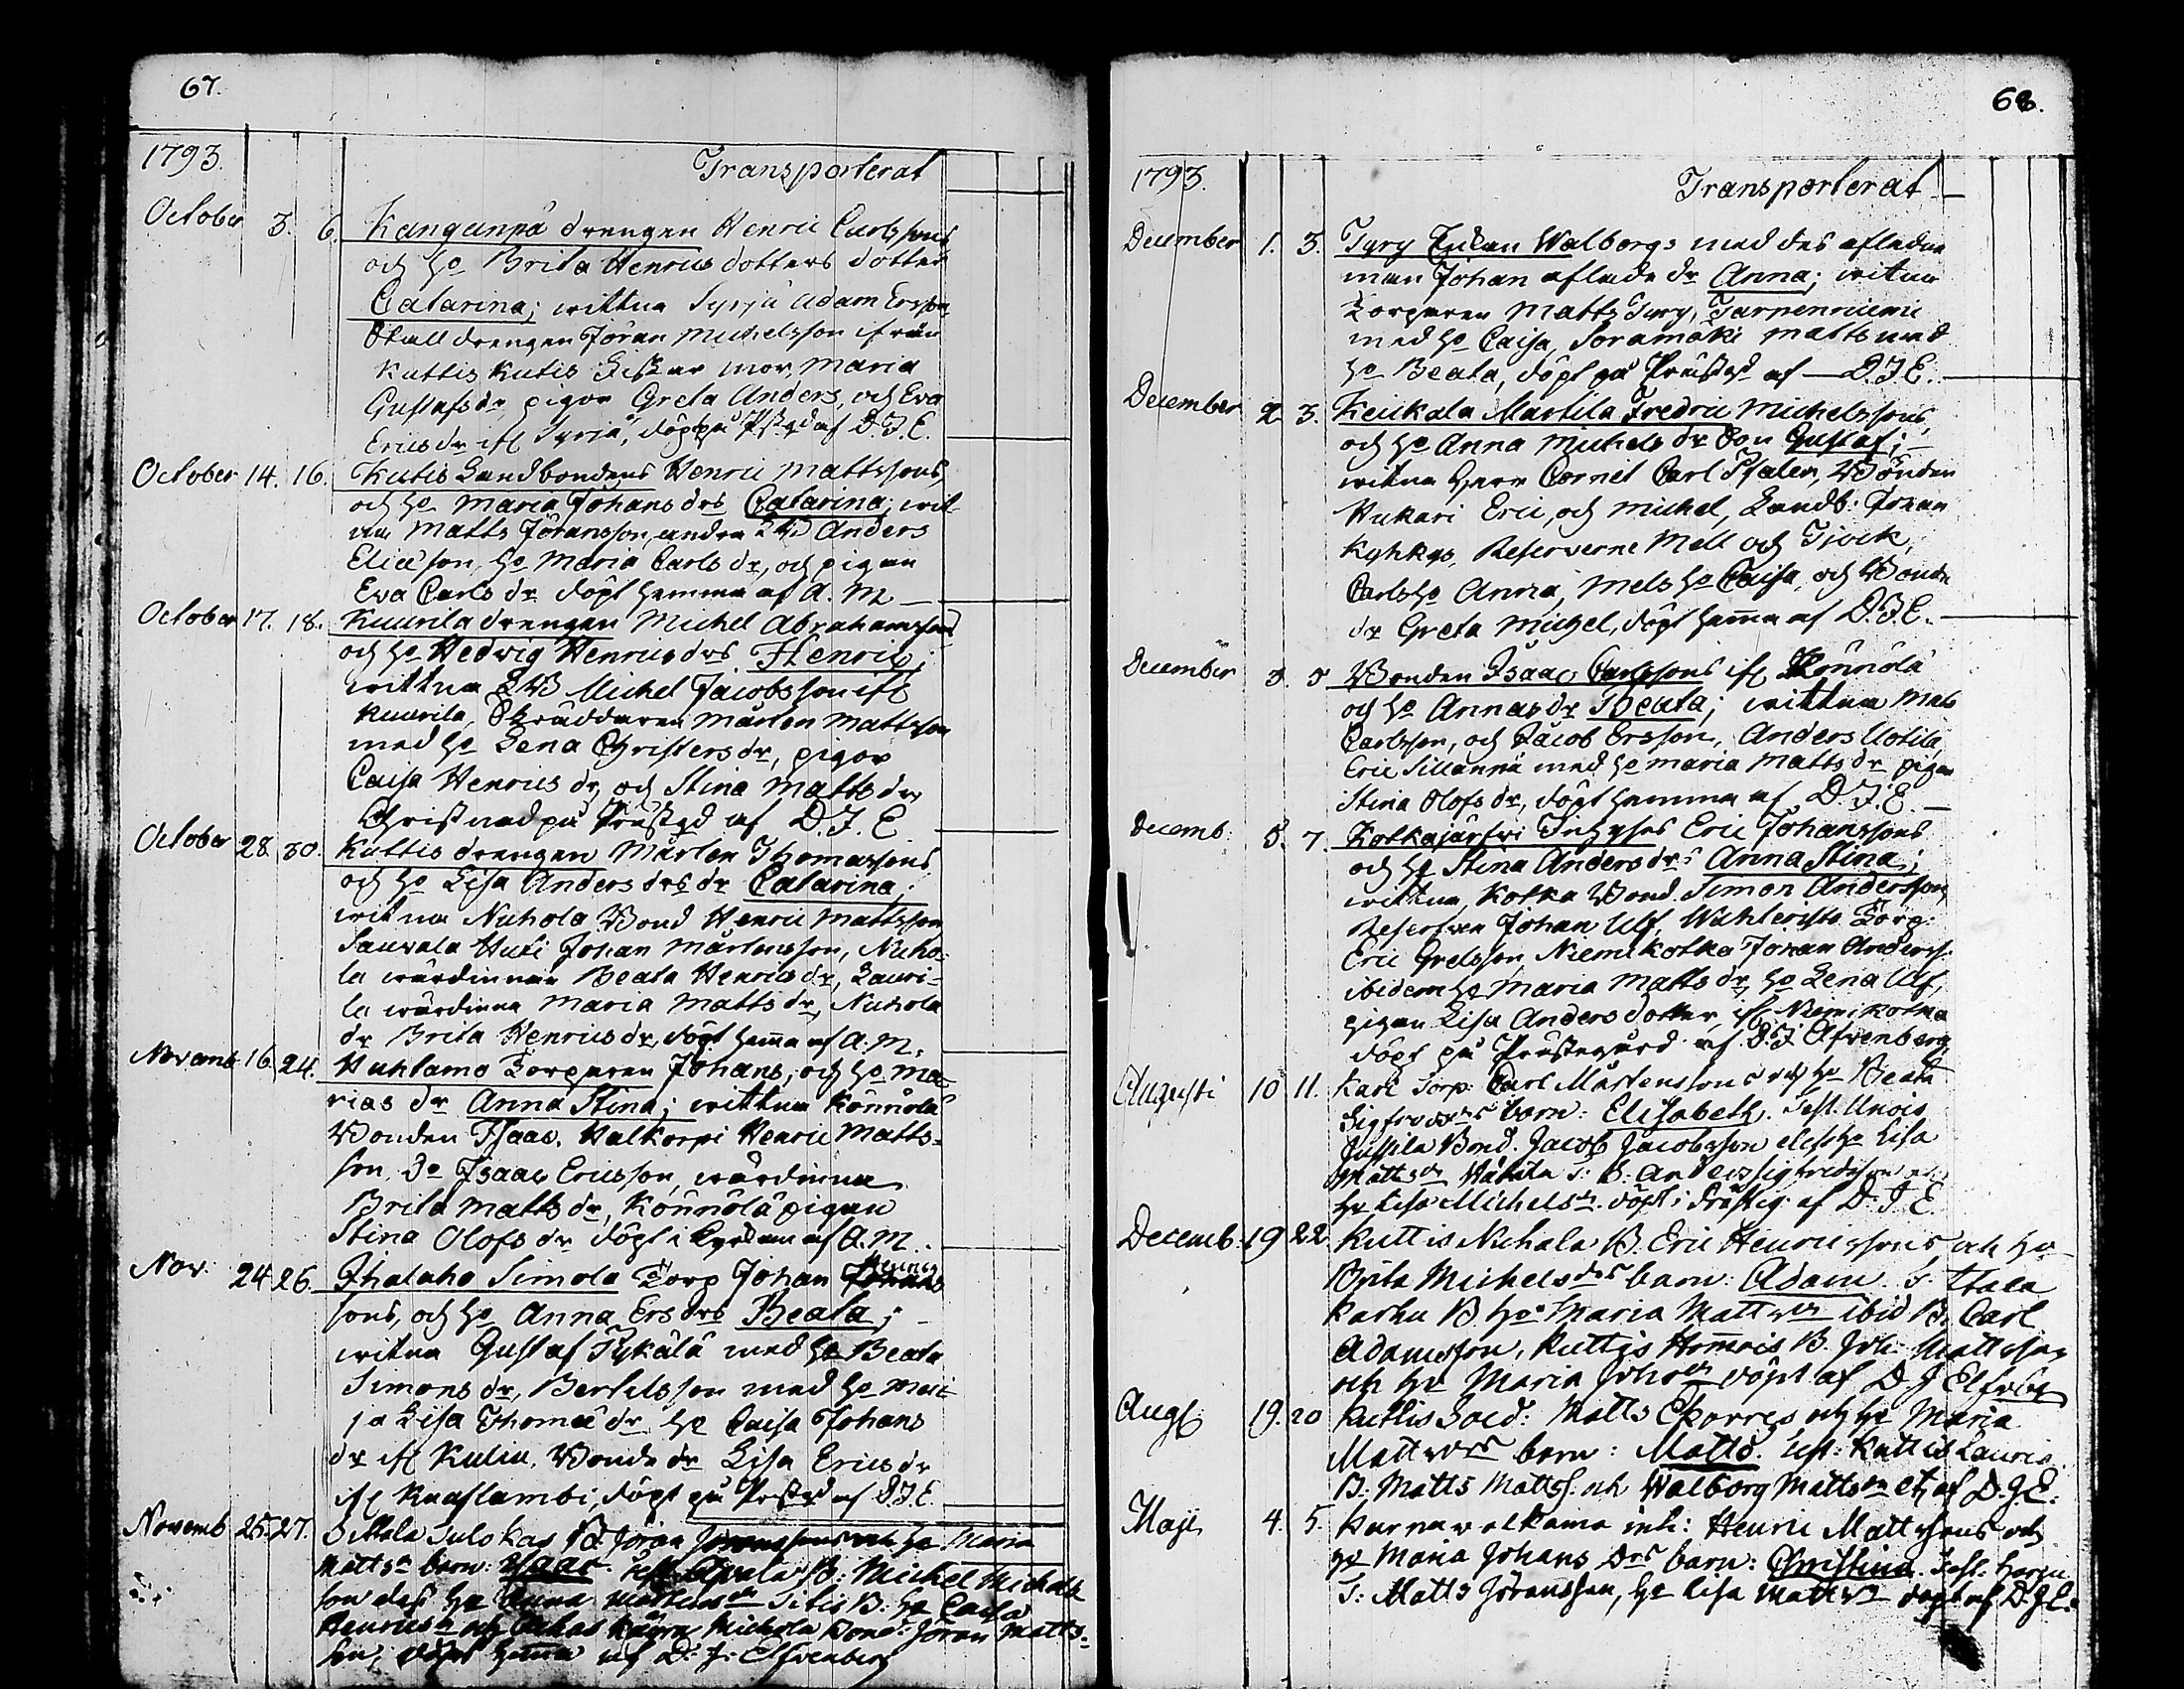 67.
1793.
Transporterat
October 3. 6. Kanganpä drengen Henric Carlssons
och ho Brita Henrics dotters dotter
Catarina; wittna Syrjä Adam Ersson
Stalldrengen Jöran Michelsson ifrån
Kuttis Kutis mor, Maria
Gustafs dr pigor Greta Anders, och Eva
Erics dr ifl Syrjä, döpt på Pstgd af D. J. E.
October 14. 16. Kutis Landbondens Henric Mattssons,
och ho Maria Johans drs Catarina; wit-
na Matts Jöransson, andra Anders
Elia'son, ho Maria Carls dr, och pigan
Eva Carls dr döpt hemma af A. M
October 17. 18. Kuurila drengen Michel Abrahamssons
och ho Hedwig Henrics drs Henric;
wittna LB Michel Jacobsson ifl
Kuurila, Skräddaren Mårten Mattsson
med ho Lena Christers dr, pigor
Caisa Henrics dr och Stina Matts dr
Christnad på Prästgd af D. J. E
October 28. 30. Kuttis drengen Mårten Thomassons
och ho Lisa Anders drs dr Catarina;
witna Nuhola Bond Henric Mattsson
Sauvala Huti Johan Mårtensson, Nuho-
la wärdinnan Beata Henrics dr, Lauri-
la wärdinna Maria Matts dr, Nuhola
dr Brita Henrics dr, döpt hema af A. M.
Novemb 16. 24. Huhtamo Torparen Johans, och ho Ma-
rias dr Anna Stina; wittna Könnölä
Bonden Isaac, Halkorpi Henric Matts-
son, Do Isaac Ericsson, wärdinna
Brita Matts dr, Könnölä pigan
Stina Olofs dr döpt i Kyrckan af A. M.
Nov: 24 26. Ihalaho Simola Torp Johan Henrics
sons, och ho Anna Ers drs Beata;
witna Gustaf Tykälä med ho Beata
Simons dr, Bertelsson med ho Mai-
ja Lisa Thomæ dr ho Caisa Johans
dr ifl Kuliu, Bonde dr Lisa Erics dr
ifl Kaaslambi, döpt på Prstgd af D. J. E.
Novemb 25. 27. Ittala Sulokas B. Jöran Jöranssons och ho Maria
Matts dr barn: Isaac. Test. B: Michel Michels
son dess ho Anna Mårtens dr B: ho Caisa
Henrics dr och Nuhola Bond: Jöran Matts-
son, döpt hemma af D: J: Elfvenberg
68.
1793.
Transporterat
December 1. 3. Tyry Walborgs med des aflidna
man Johan aflade dr Anna; witna
Torparen Matts Tyry, Tarpenniemi
med ho Caisa, Soramäki Matts med
ho Beata, döpt på Prästgd af D. J. E.
December 2. 3. Keickala Martila Fredric Michelssons,
och ho Anna Michels dr son Gustaf;
witna Herr Cornet Carl Stålen, Bönder
Hukari Eric, och Michel, Landb: Johan
Kyhkys, Reserverne Mell och Tjock,
Carls ho Anna, Mels ho Caisa, och Bonde
dr Greta Michel, döpt hema af D. J. E.
December 3. 5 Bonden Isaac Carlssons ifl Könnölä
och ho Annas dr Beata; wittna Mats
Carlsson, och Jacob Ersson, Anders Uotila
Eric Sillanpä med ho Maria Matts dr pigan
Stina Olofs dr, döpt hemma af D. J. E.
Decemb: 5. 7. Kotkajärfwi Inhyses Eric Johanssons
och ho Stina Anders drs Anna Stina;
wittna, Kotka Bond Simon Andersson,
Reserven Johan Ulf, Torp:
Eric Grelsson, Niemikotka Johan Anderss:
ibidem ho Maria Matts dr, ho Lena Ulf,
pigan Lisa Anders dotter ifl Niemikotka
döpt på Prästegård af D. J Elfvenberg
Augusti 10 11. Kari Torp: Carl Mårtenssons och ho Beata
Sigfrids drs barn: Elisabeth. Test. Unois
Jussila Bond. Jacob Jacobsson dess ho Lisa
Matts dr Wätilä T: B: Anders Sigfridsson och
ho Lisa Michels dr. döpt i Prästeg: af D. J. E
Decemb. 19 22 Kuttis Nuhala B. Eric Henricssons och ho
Brita Michels drs barn: Adam. T. Ittala
Karhu B. ho Maria Matts dr ibid B. Carl
Adamsson, Kuttis Homois B. Joh: Mattsson
och ho Maria Johs dr döpt af D J Elfvbg
Augl: 19. 20 Kuttis Sold: Matts Eporres och ho Maria
Matts drs barn: Matts. Test: Kuttis Lauris
B: Matts Mattss. och Walborg Matts dr etc af D. J. E.
Maji 4. 5. Karna walkama inh: Henric Mattssons och
ho Maria Johans Drs barn: Christina. Test.
T: Matts Jöransson, ho Lisa Matts dr döpt af D. J. E.